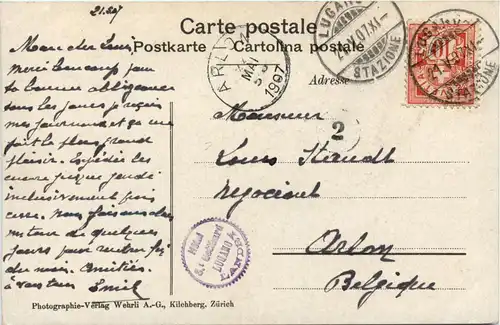 21.5.07
Carte postale
Postkarte - Cartolina postale
Adresse
Mon cher Louis
merci beaucoup pour
ta bonne obligeance
tous les jours je reçois
mes journaux et ça me
fait le plus grand
plaisir. Expédiez les
encore jusque jeudi
inclusivement puis
cesser. Nous faisons dans
de quelques
jours pour rentrer fin
du mois. Amitiés
à vous tous Emile
Monsieur
Louis Staudt
négociant
Arlon
Belgique
2
ARLON
MAI
1907
LUGANO
21.V.07.XI-
STAZIONE
LUGANO
21.V.07.XI-
STAZIONE
Photographie-Verlag Wehrli A.-G., Kilchberg, Zürich